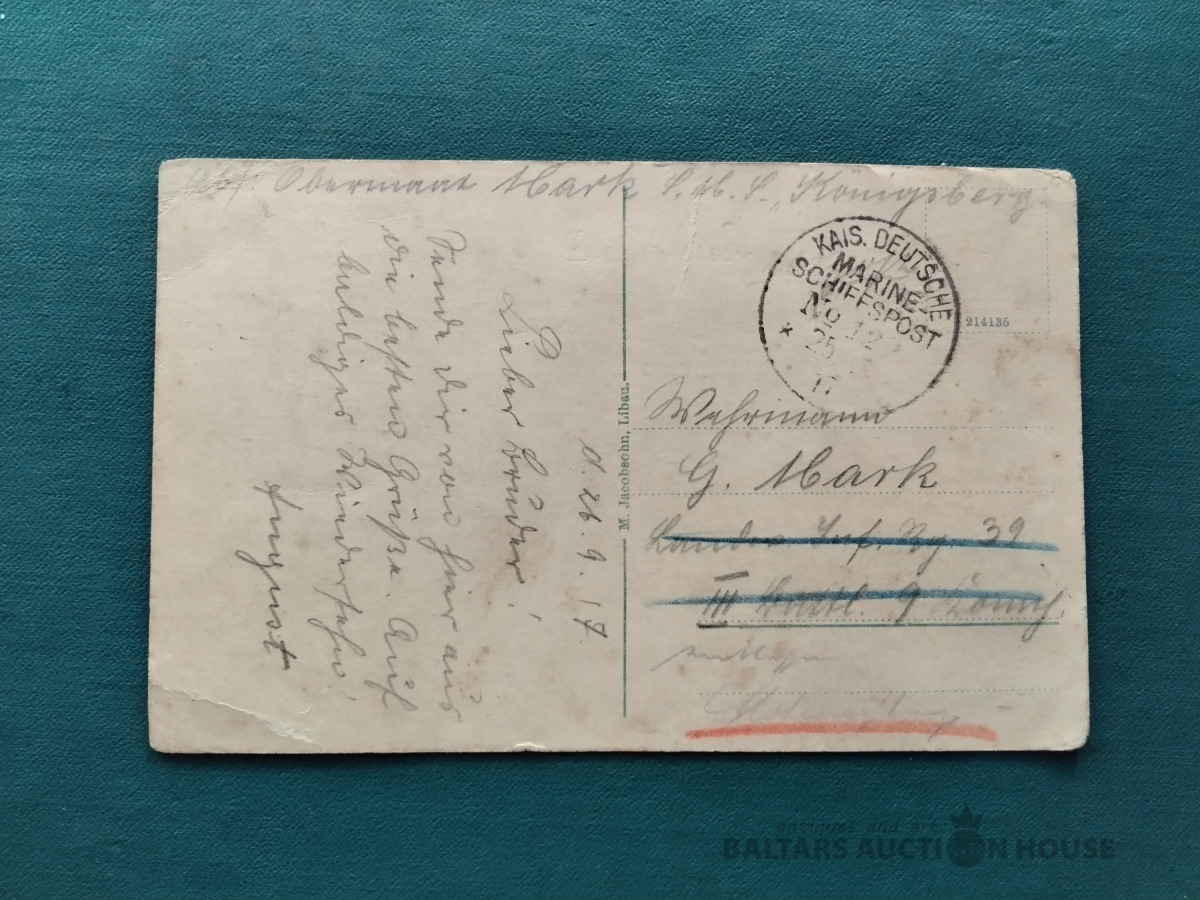 Obermaat Mark S.M.S. „Königsberg
d. 26. 9. 17.
Lieber Bruder!
Sende dir von hier aus
die besten Grüße. Auf
baldiges Wiedersehn!
August
KAIS. DEUTSCHE
MARINE-
SCHIFFSPOST
No 12
25
17
*
214135
M. Jacobsohn, Libau.
Wehrmann
G. Mark
Landw. Inf. Rg. 39
III Batl.
antiques and art
BALTARS AUCTION HOUSE